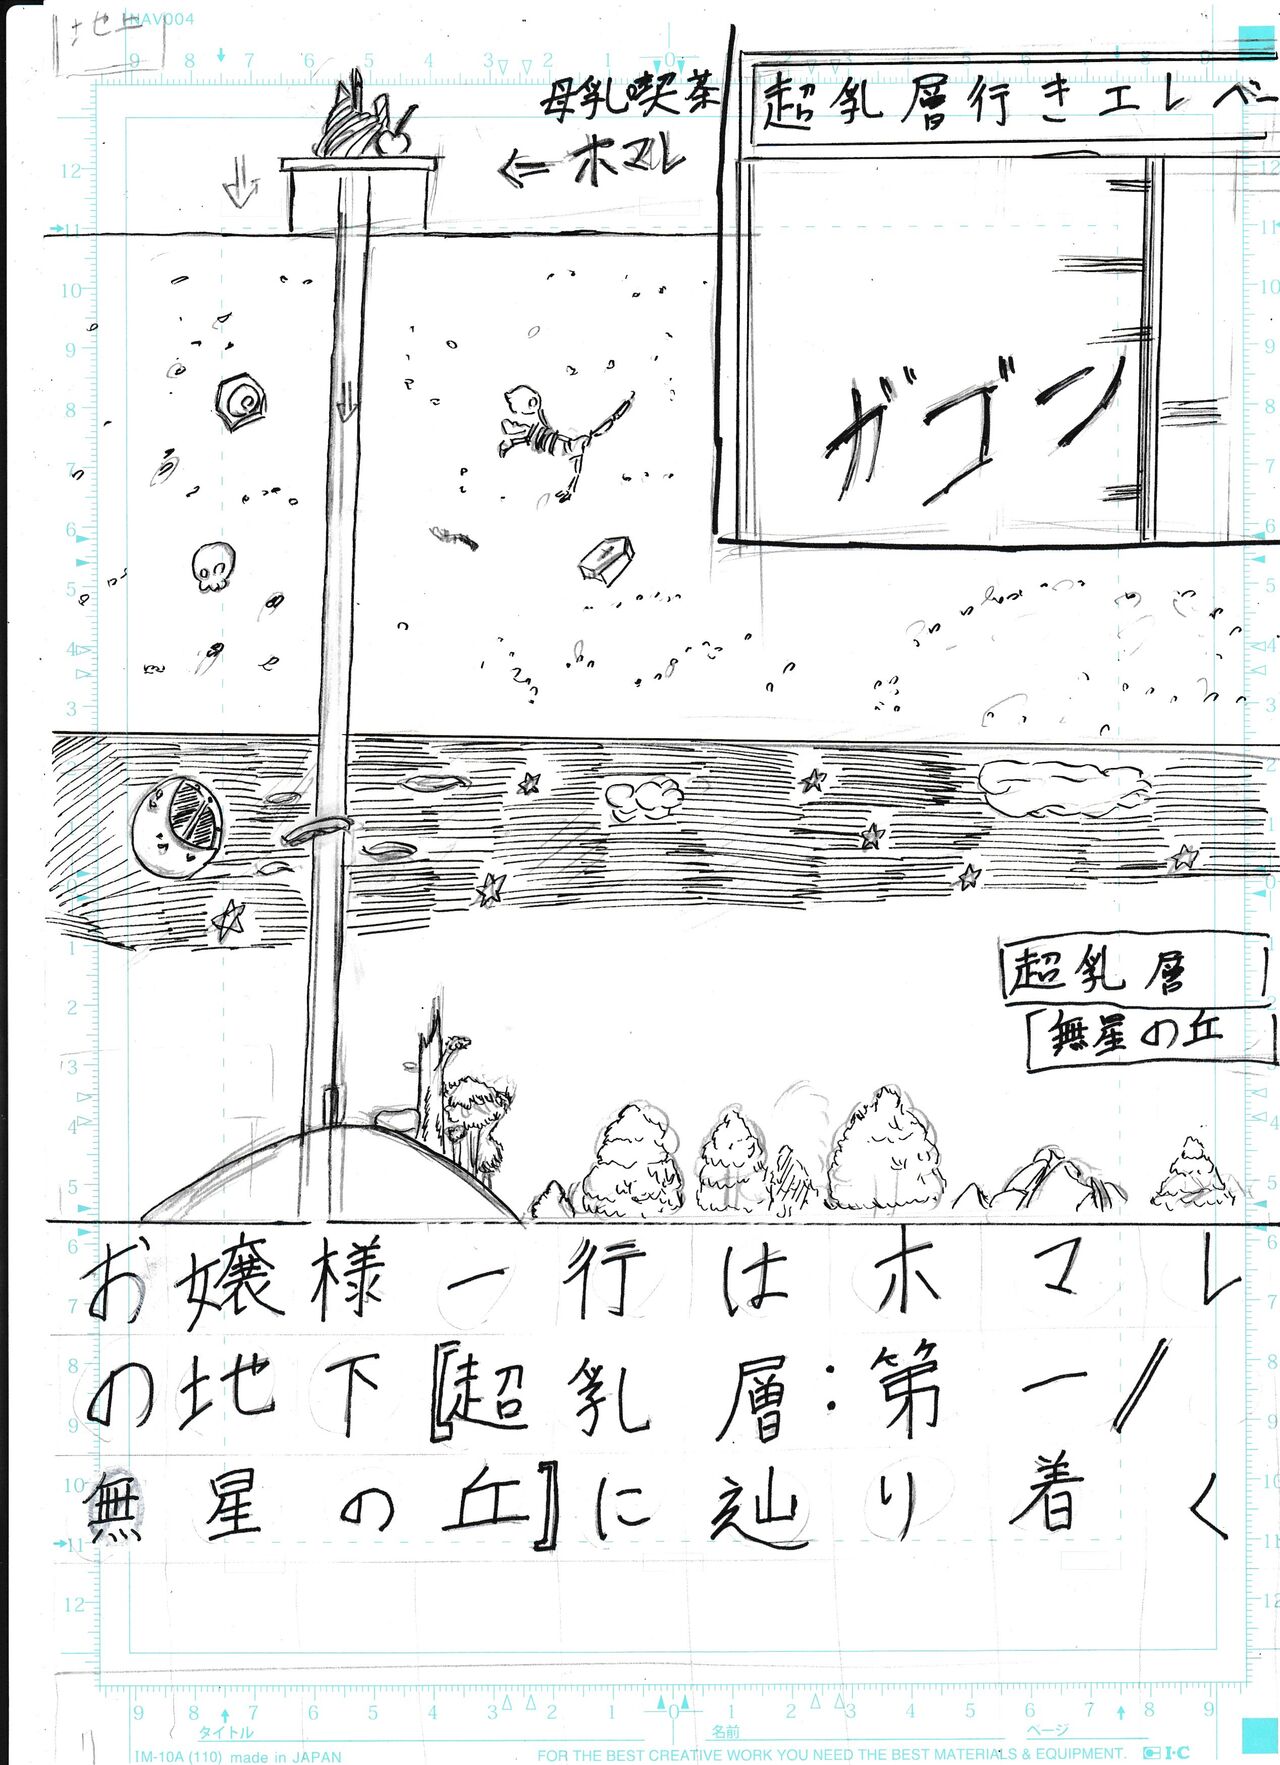 地上
NAV004
超乳層行きエレベー
母乳喫茶
⇐ ホマレ
ガゴン
超乳層
「無星の丘
お嬢様一行はホマレ
の地下『超乳層:第一//
無星の丘』に辿り着く
タイトル
名前
ページ
IM-10A (110) made in JAPAN
FOR THE BEST CREATIVE WORK YOU NEED THE BEST MATERIALS & EQUIPMENT.
I·C